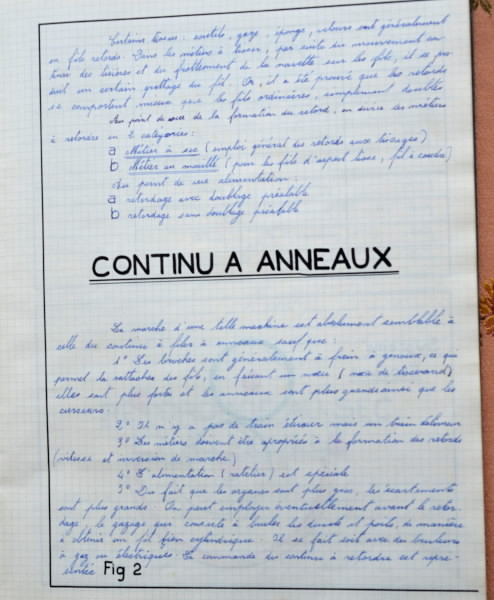 Certains tissus : coutils, gaze, éponge, velours sont généralement
en fils retords. Dans les métiers à tisser, par suite du mouvement con-
tinu des lisières et du frottement de la navette sur les fils, il se pro-
duit un certain grattage du fil. Or, il a été prouvé que les retords
se comportent mieux que les fils ordinaires, simplement doublés
Au point de vue de la formation du retord, on divise les métiers
à retordre en 2 catégories :
a Métier à sec (emploi général des retords aux tissages)
b Métier au mouillé (pour les fils d'aspect lisse, fil à coudre)
Au point de vue alimentation :
a retordage avec doublage préalable
b retordage sans doublage préalable
CONTINU A ANNEAUX
La marche d'une telle machine est absolument semblable à
celle du continu à filer à anneaux sauf que :
1° Les broches sont généralement à frein à genoux, ce qui
permet la rattache du fil, en faisant un nœud (nœud de tisserand)
elles sont plus fortes et les anneaux sont plus grands ainsi que les
curseurs.
2° Il n'y a pas de train étireur mais un train délivreur
3° Les métiers doivent être apropriés à la formation des retords
(vitesse et inversion de marche)
4° L'alimentation (ratelier) est spéciale
5° Du fait que les organes sont plus gros, les écartements
sont plus grands. On peut employer éventuellement avant le retor-
dage, le gazage qui consiste à brûler les duvets et poils, de manière
à obtenir un fil bien cylindrique. Il se fait soit avec des bruleurs
à gaz ou électriques. La commande du continu à retordre est repré-
sentée Fig 2